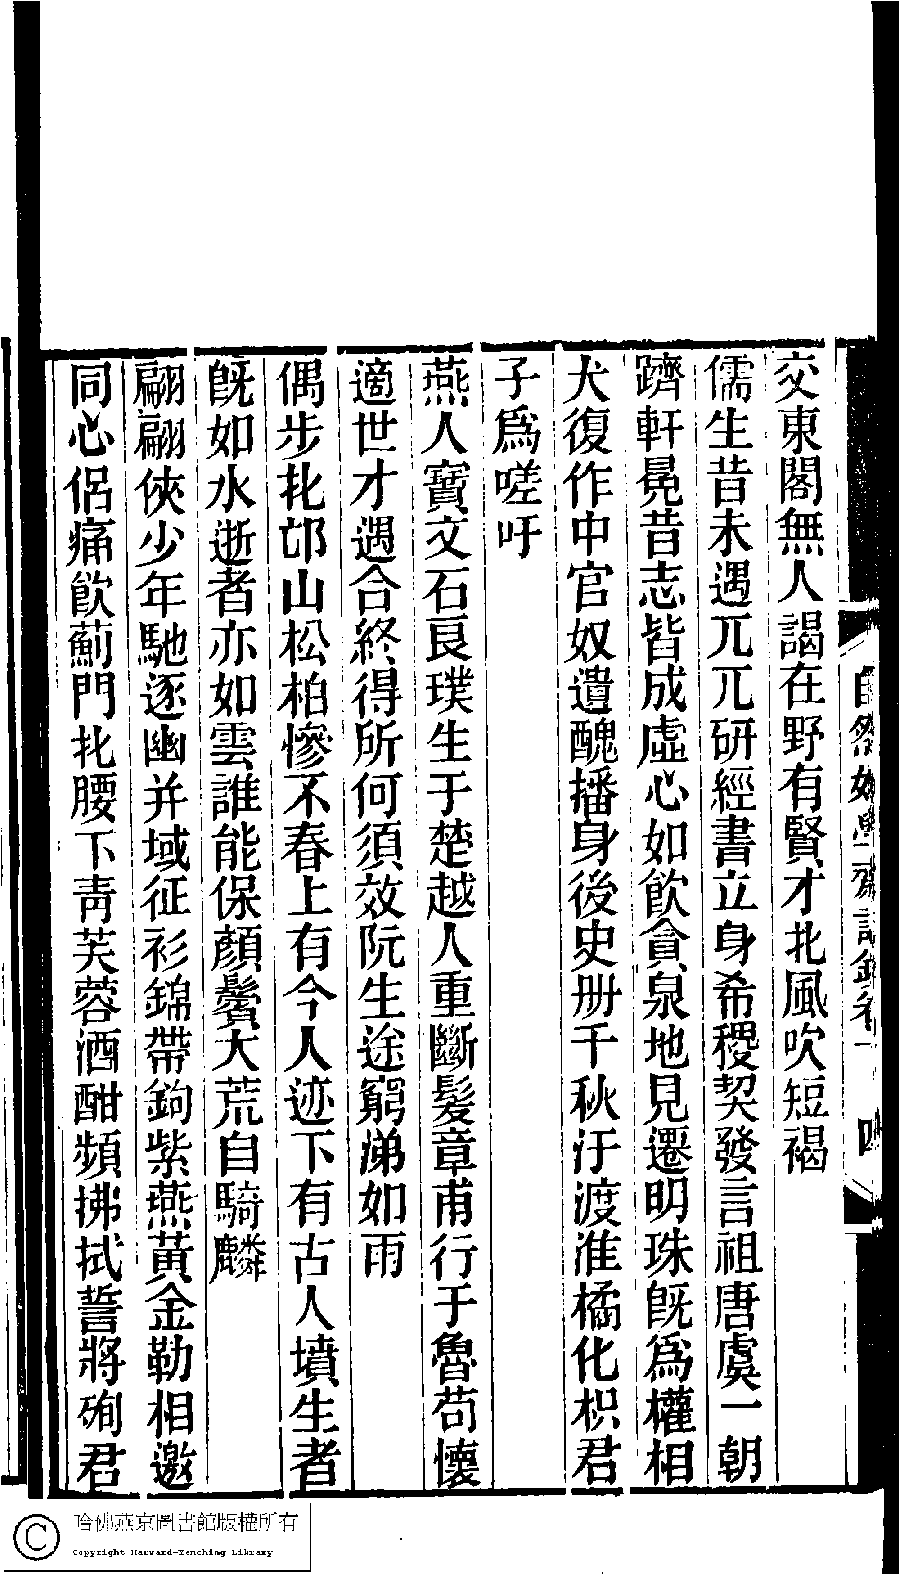 交東閣無人謁在野有賢才北風吹短褐
儒生昔未遇兀兀研經書立身希稷契發言祖唐虞一朝
躋軒冕昔志皆成虛心如飲貪泉地見遷明珠既爲權相
犬復作中官奴遺醜播身後史册千秋汙渡淮橘化枳君
子爲嗟吁
燕人寶文石良璞生于楚越人重斷髮章甫行于魯苟懷
適世才遇合終得所何須效阮生途窮涕如雨
偶步北邙山松柏慘不春上有今人迹下有古人墳生者
既如水逝者亦如雲誰能保顏鬢大荒自騎麟
翩翩俠少年馳逐幽并域征衫錦帶鉤紫燕黃金勒相邀
同心侶痛飲薊門北腰下靑芙蓉酒酣頻拂拭誓將殉君
自然好學齋詩鈔卷一
四
哈佛燕京圖書館版權所有
Copyright Harvard-Yenching Library